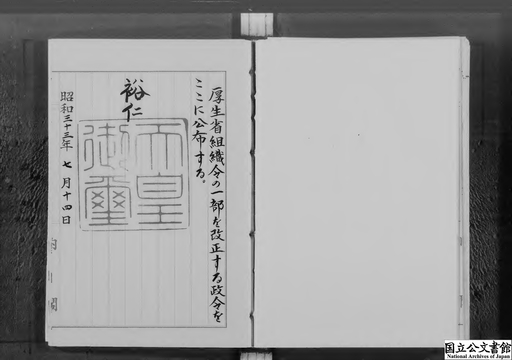 厚生省組織令の一部を改正する政令を
ここに公布する。
裕仁
天皇
御璽
昭和三十三年七月十四日
内閣
国立公文書館
National Archives of Japan